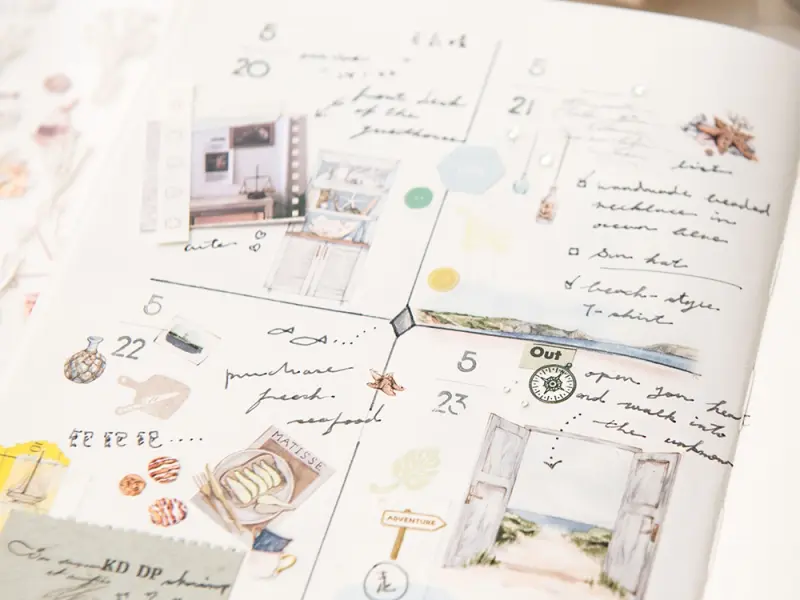 5
20
front desk
of the
guesthouse
cute
5
21
list
handmade beaded
necklace in
ocean blue
Sun hat
beach-style
T-shirt
5
22
purchase
fresh
seafood
MATISSE
KD DP
5
23
Out
open you hea
and walk into
the unknown
ADVENTURE